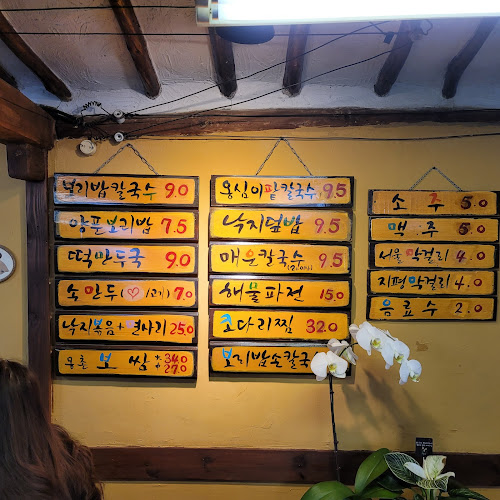 보리밥칼국수 9.0
양푼보리밥 7.5
떡만두국 9.0
숙만두 7.0
낙지볶음+면사리 25.0
보쌈 大34.0 小27.0
옹심이팥칼국수 9.5
낙지덮밥 9.5
매운칼국수 9.5
해물파전 15.0
코다리찜 32.0
보리밥소칼국
소주 5.0
맥주 5.0
서울막걸리 4.0
지평막걸리 4.0
음료수 2.0